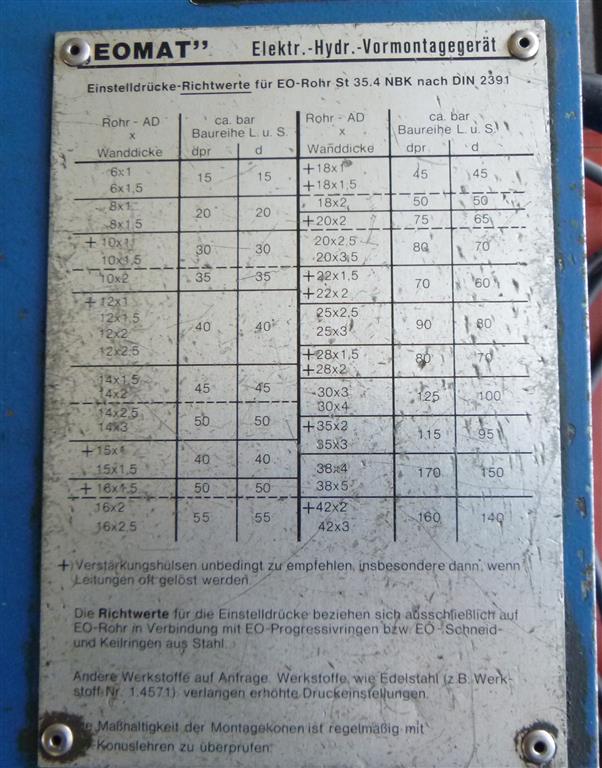 „EOMAT” Elektr.-Hydr.-Vormontagegerät
Einstelldrücke-Richtwerte für EO-Rohr St 35.4 NBK nach DIN 2391
Rohr - AD x Wanddicke
ca. bar Baureihe L. u. S.
dpr d
6x1
6x1,5
15 15
8x1
8x1,5
20 20
+10x1
10x1,5
30 30
10x2 35 35
+12x1
12x1,5
12x2
12x2,5
40 40
14x1,5
14x2
45 45
14x2,5
14x3
50 50
+15x1
15x1,5
40 40
+16x1,5 50 50
16x2
16x2,5
55 55
Rohr - AD x Wanddicke
ca. bar Baureihe L. u. S.
dpr d
+18x1
+18x1,5
45 45
18x2 50 50
+20x2 75 65
20x2,5
20x3,5
80 70
+22x1,5
+22x2
70 60
25x2,5
25x3
90 80
+28x1,5
+28x2
80 70
30x3
30x4
125 100
+35x2
35x3
115 95
38x4
38x5
170 150
+42x2
42x3
160 140
+) Verstärkungshülsen unbedingt zu empfehlen, insbesondere dann, wenn
Leitungen oft gelöst werden.
Die Richtwerte für die Einstelldrücke beziehen sich ausschließlich auf
EO-Rohr in Verbindung mit EO-Progressivringen bzw. EO-Schneid-
und Keilringen aus Stahl.
Andere Werkstoffe auf Anfrage. Werkstoffe, wie Edelstahl (z.B. Werk-
stoff Nr. 1.4571) verlangen erhöhte Druckeinstellungen.
Maßhaltigkeit der Montagekonen ist regelmäßig mit
Konuslehren zu überprüfen.